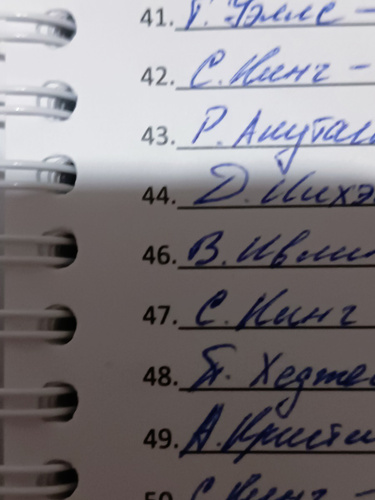 41. Г. Уэллс -
42. С. Кинг -
43. Р. Акутаг
44. Д. Лихэ
46. В. Ивли
47. С. Кинг
48. П. Хедже
49. А. Кристи
50. С. Кинг -